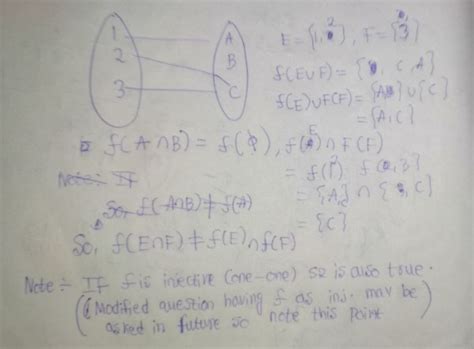 1 A
2 B
3 C
E = {1, 2}, F = {3}
f(E∪F) = { C, A}
f(E)∪f(F) = {A} ∪ {C}
= {A, C}
f(A∩B) = f(ϕ), f(E) ∩ F(F)
Note:- If
= f(1, 2)
So, f(A∩B) ≠ f(A)
= {A} ∩ { C}
= {C}
So, f(E∩F) ≠ f(E) ∩ f(F)
Note :- IF f is injective (one-one) S2 is also true.
(Modified question having f as inj. may be
asked in future so note this point)